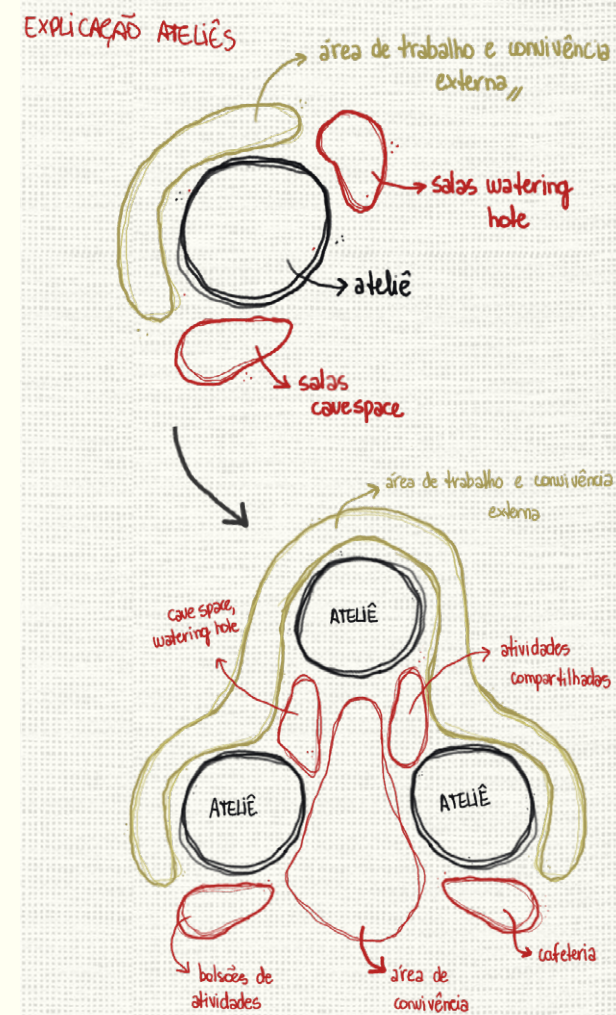 EXPLICAÇÃO ATELIÊS
área de trabalho e convivência
externa
salas watering
hole
ateliê
salas
cavespace
área de trabalho e convivência
externa
ATELIÊ
cave space,
watering hole
atividades
compartilhadas
ATELIÊ
ATELIÊ
cafeteria
bolsões de
atividades
área de
convivência